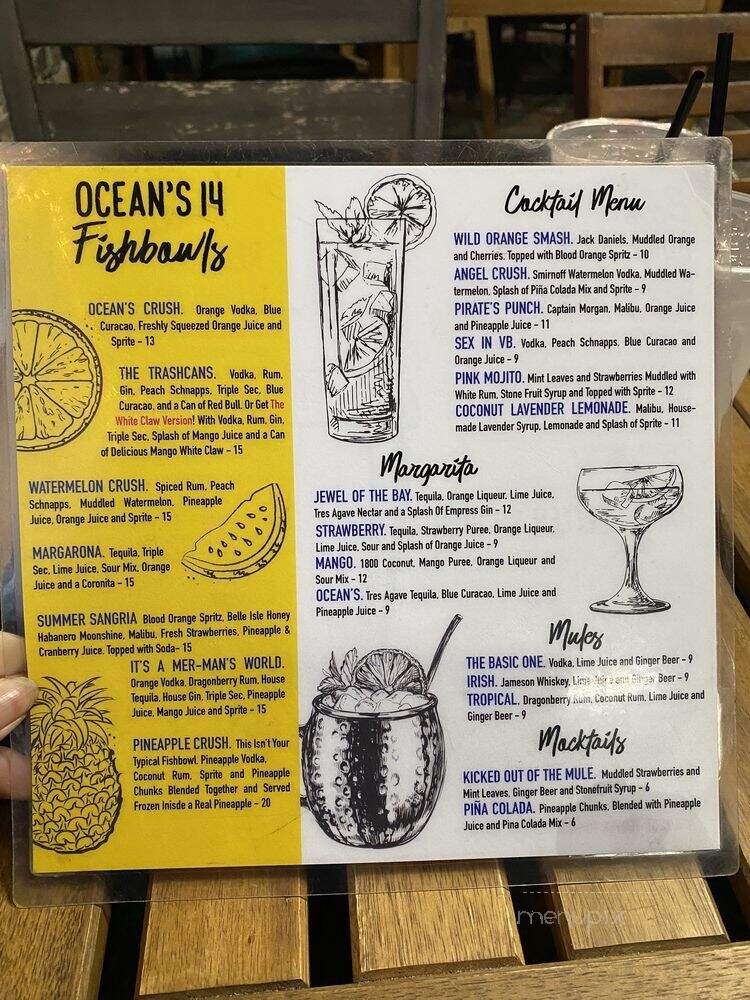 OCEAN'S 14
Fishbowls
OCEAN'S CRUSH. Orange Vodka, Blue
Curacao, Freshly Squeezed Orange Juice and
Sprite - 13
THE TRASHCANS. Vodka, Rum,
Gin, Peach Schnapps, Triple Sec, Blue
Curacao, and a Can of Red Bull. Or Get The
White Claw Version! With Vodka, Rum, Gin,
Triple Sec, Splash of Mango Juice and a Can
of Delicious Mango White Claw - 15
WATERMELON CRUSH. Spiced Rum, Peach
Schnapps, Muddled Watermelon, Pineapple
Juice, Orange Juice and Sprite - 15
MARGARONA. Tequila, Triple
Sec, Lime Juice, Sour Mix, Orange
Juice and a Coronita - 15
SUMMER SANGRIA Blood Orange Spritz, Belle Isle Honey
Habanero Moonshine, Malibu, Fresh Strawberries, Pineapple &
Cranberry Juice. Topped with Soda- 15
IT'S A MER-MAN'S WORLD.
Orange Vodka, Dragonberry Rum, House
Tequila, House Gin, Triple Sec, Pineapple
Juice, Mango Juice and Sprite - 15
PINEAPPLE CRUSH. This Isn't Your
Typical Fishbowl. Pineapple Vodka,
Coconut Rum, Sprite and Pineapple
Chunks Blended Together and Served
Frozen Inisde a Real Pineapple - 20
Cocktail Menu
WILD ORANGE SMASH. Jack Daniels, Muddled Orange
and Cherries. Topped with Blood Orange Spritz - 10
ANGEL CRUSH. Smirnoff Watermelon Vodka, Muddled Wa-
termelon, Splash of Piña Colada Mix and Sprite - 9
PIRATE'S PUNCH. Captain Morgan, Malibu, Orange Juice
and Pineapple Juice - 11
SEX IN VB. Vodka, Peach Schnapps, Blue Curacao and
Orange Juice - 9
PINK MOJITO. Mint Leaves and Strawberries Muddled with
White Rum, Stone Fruit Syrup and Topped with Sprite - 12
COCONUT LAVENDER LEMONADE. Malibu, House-
made Lavender Syrup, Lemonade and Splash of Sprite - 11
Margarita
JEWEL OF THE BAY. Tequila, Orange Liqueur, Lime Juice,
Tres Agave Nectar and a Splash Of Empress Gin - 12
STRAWBERRY. Tequila, Strawberry Puree, Orange Liqueur,
Lime Juice, Sour and Splash of Orange Juice - 9
MANGO. 1800 Coconut, Mango Puree, Orange Liqueur and
Sour Mix - 12
OCEAN'S. Tres Agave Tequila, Blue Curacao, Lime Juice and
Pineapple Juice - 9
Mules
THE BASIC ONE. Vodka, Lime Juice and Ginger Beer - 9
IRISH. Jameson Whiskey, Lime Juice and Ginger Beer - 9
TROPICAL. Dragonberry Rum, Coconut Rum, Lime Juice and
Ginger Beer - 9
Mocktails
KICKED OUT OF THE MULE. Muddled Strawberries and
Mint Leaves, Ginger Beer and Stonefruit Syrup - 6
PIÑA COLADA. Pineapple Chunks, Blended with Pineapple
Juice and Pina Colada Mix - 6
menupix